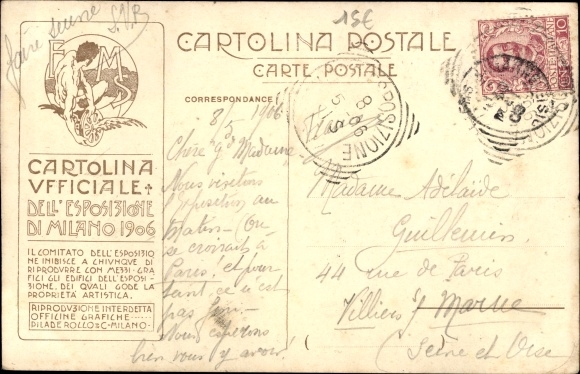 faire suivre
S.V.P.
15€
CARTOLINA POSTALE
CARTE POSTALE
CORRESPONDANCE
CARTOLINA
VFFICIALE
DELL'ESPOSIZIONE
DI MILANO 1906
IL COMITATO DELL'ESPOSIZIO
NE INIBISCE A CHIVNQVE DI
RIPRODVRRE CON MEZZI GRA
FICI GLI EDIFICI DELL'ESPOSI-
ZIONE, DEI QVALI GODE LA
PROPRIETÀ ARTISTICA.
RIPRODVZIONE INTERDETTA
OFFICINE GRAFICHE
PILADE ROLLO & C-MILANO-
8/5 1906
Chère gde Madame
Nous visitons
l'exposition au
matin - On
se croirait à
Paris, et pour
tant, ce n'est
pas
Nous espérons
bien vous y avoir!
Madame Adélaïde
Guillemin
44 rue de Paris
Villiers s/ Marne
(Seine et Oise)
ESPOSIZIONE
8 5 06